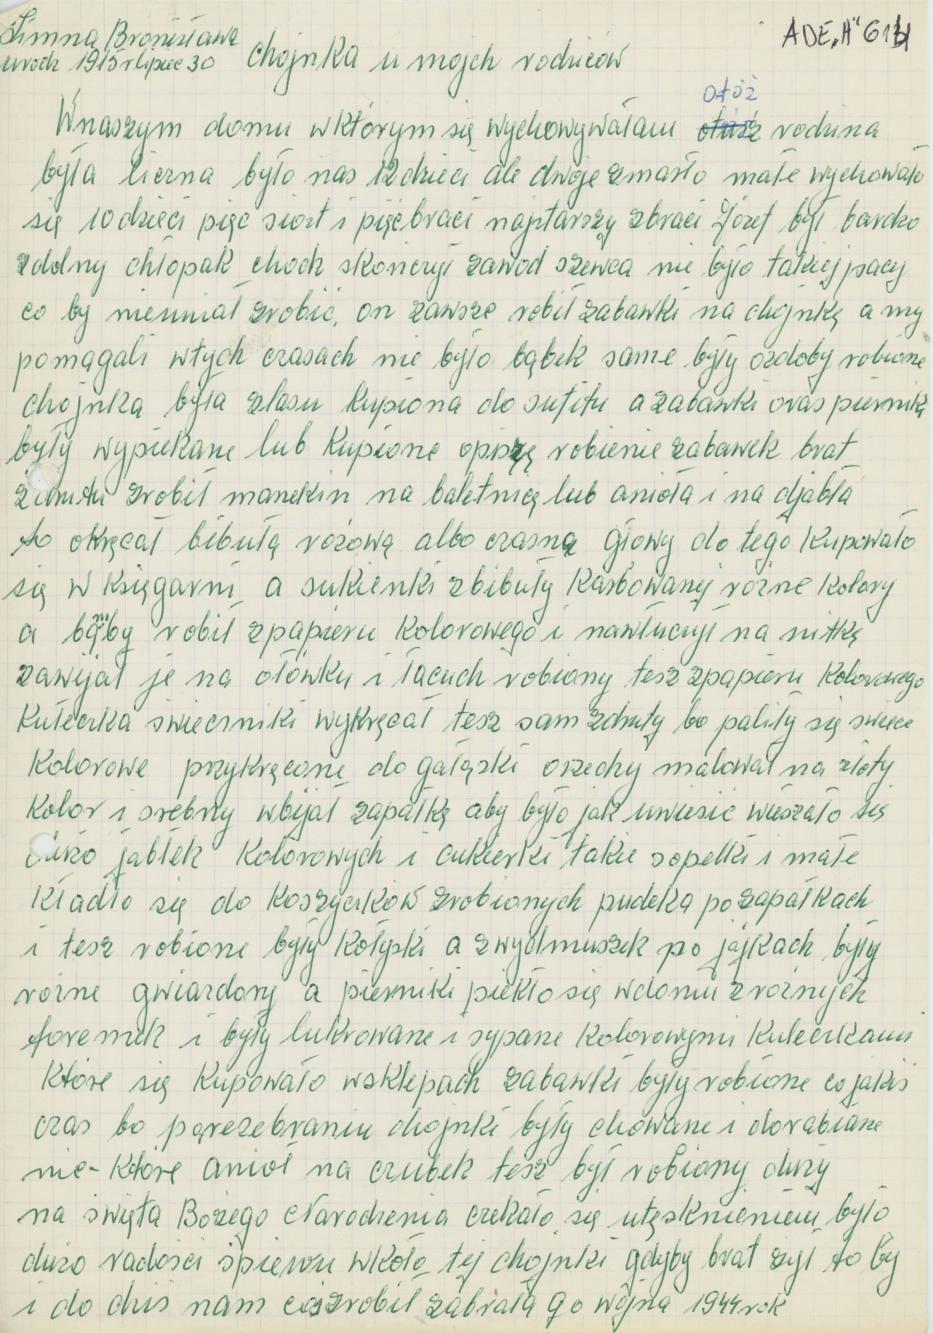 Simna Bronisława
urodz 1915r lipiec 30
ADE „H" 613
Chojnka u mojch rodziców
Wnaszym domu wktórym się wychowywałam otóż rodzina
była liczna było nas 12 dzieci ale dwoje zmarło małe wychowało
się 10 dzieci pięc siozt i pięć braci najstarszy zbraci Józef był bardzo
zdolny chłopak choch skończył zawód szewca nie było takiej pacy
co by nieumiał zrobić, on zawsze robił zabawki na chojnkę a my
pomagali wtych czasach nie było bąbek same były ozdoby robione
chojnka była zlasu kupiona do sufitu a zabawki oras pierniki
były wypiekane lub kupione opiszę robienie zabawek brat
zdrutu zrobił manekin na baletnicę lub anioła i na djabła
to okręcał bibułą rożową albo czarną głowy do tego kupowało
się w księgarni a sukienki zbibuły karbowanej różne kolory
a bąmby robił zpapieru kolorowego i nawłuczył na nitkę
zawijał je na ołówku i łacuch robiony tesz zpapieru kolorowego
kuleczka świeczniki wykręcał tesz sam zdruty bo paliły się swiece
kolorowe przykręcone do gałąski orzechy malował na złoty
kolor i srebny wbijał zapałkę aby było jak uwiesić wieszało się
dużo jabłek kolorowych i cukierki takie sopelki i małe
kładło się do koszyczków zrobionych pudełka po zapałkach
i tesz robione były kołyski a zwydmuszek po jajkach były
rożne gwiazdory a pierniki piekło się wdomu zrożnych
foremek i były lukrowane i sypane kolorowymi kuleczkami
które się kupowało wsklepach zabawki były robione co jakiś
czas bo porozebraniu chojnki były chowane i dorabiane
nie-które anioł na czubek tesz był robiony duży
na święta Bożego Narodzenia czekało się utęsknieniem było
dużo radości śpiewu wkoło tej chojnki gdyby brat żył to by
i do dziś nam coś zrobił zabrała go wojna 1944 rok